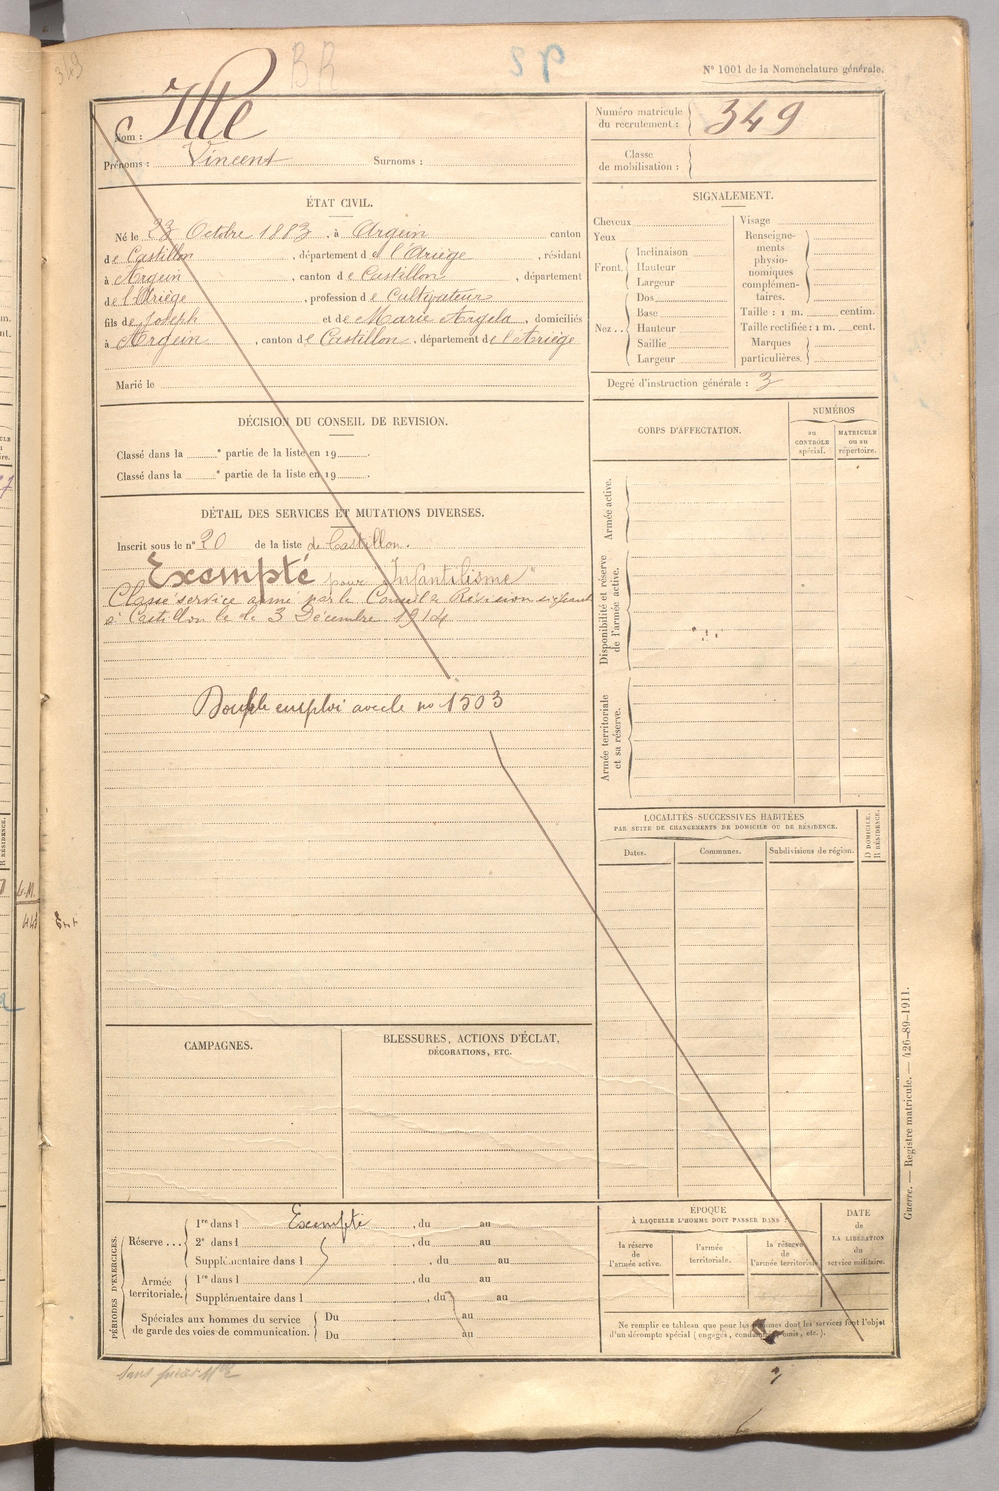 349
BR
sp
N° 1001 de la Nomenclature générale.
Nom : Ille
Prénoms : Vincent Surnoms :
Numéro matricule du recrutement : 349
Classe de mobilisation :
ÉTAT CIVIL.
Né le 23 Octobre 1883, à Argein canton
de Castillon, département de l'Ariège, résidant
à Argein, canton de Castillon, département
de l'Ariège, profession de Cultivateur
fils de Joseph et de Marie Argela, domiciliés
à Argein, canton de Castillon, département de l'Ariège
Marié le
SIGNALEMENT.
Cheveux
Yeux
Front. Inclinaison
Hauteur
Largeur
Nez .. Dos
Base
Hauteur
Saillie
Largeur
Visage
Renseigne-
ments
physio-
nomiques
complémen-
taires.
Taille : 1 m. centim.
Taille rectifiée : 1 m. cent.
Marques
particulières.
Degré d'instruction générale : 3
DÉCISION DU CONSEIL DE REVISION.
Classé dans la e partie de la liste en 19 .
Classé dans la e partie de la liste en 19 .
DÉTAIL DES SERVICES ET MUTATIONS DIVERSES.
Inscrit sous le n° 20 de la liste de Castillon.
Exempté pour "Infantilisme"
Classé service armé par le Conseil de Révision siégeant
à Castillon le le 3 Décembre 1914
Double emploi avec le no 1503
CORPS D'AFFECTATION.
NUMÉROS
au CONTRÔLE spécial.
MATRICULE ou au répertoire.
Armée active.
Disponibilité et réserve de l'armée active.
Armée territoriale et sa réserve.
LOCALITÉS SUCCESSIVES HABITÉES
PAR SUITE DE CHANGEMENTS DE DOMICILE OU DE RÉSIDENCE.
D DOMICILE.
R RÉSIDENCE.
Dates.
Communes.
Subdivisions de région.
CAMPAGNES.
BLESSURES, ACTIONS D'ÉCLAT,
DÉCORATIONS, ETC.
PÉRIODES D'EXERCICES.
Réserve ... 1re dans l Exempté, du au
2e dans l , du au
Supplémentaire dans l , du au
Armée territoriale. 1re dans l , du au
Supplémentaire dans l , du au
Spéciales aux hommes du service
de garde des voies de communication.
Du au
Du au
ÉPOQUE
À LAQUELLE L'HOMME DOIT PASSER DANS :
la réserve de l'armée active.
l'armée territoriale.
la réserve de l'armée territoriale
DATE
de
LA LIBÉRATION
du
service militaire.
Ne remplir ce tableau que pour les hommes dont les services font l'objet
d'un décompte spécial (engagés, condamnés, omis, etc.).
Guerre. — Registre matricule. — 426-89-1911.